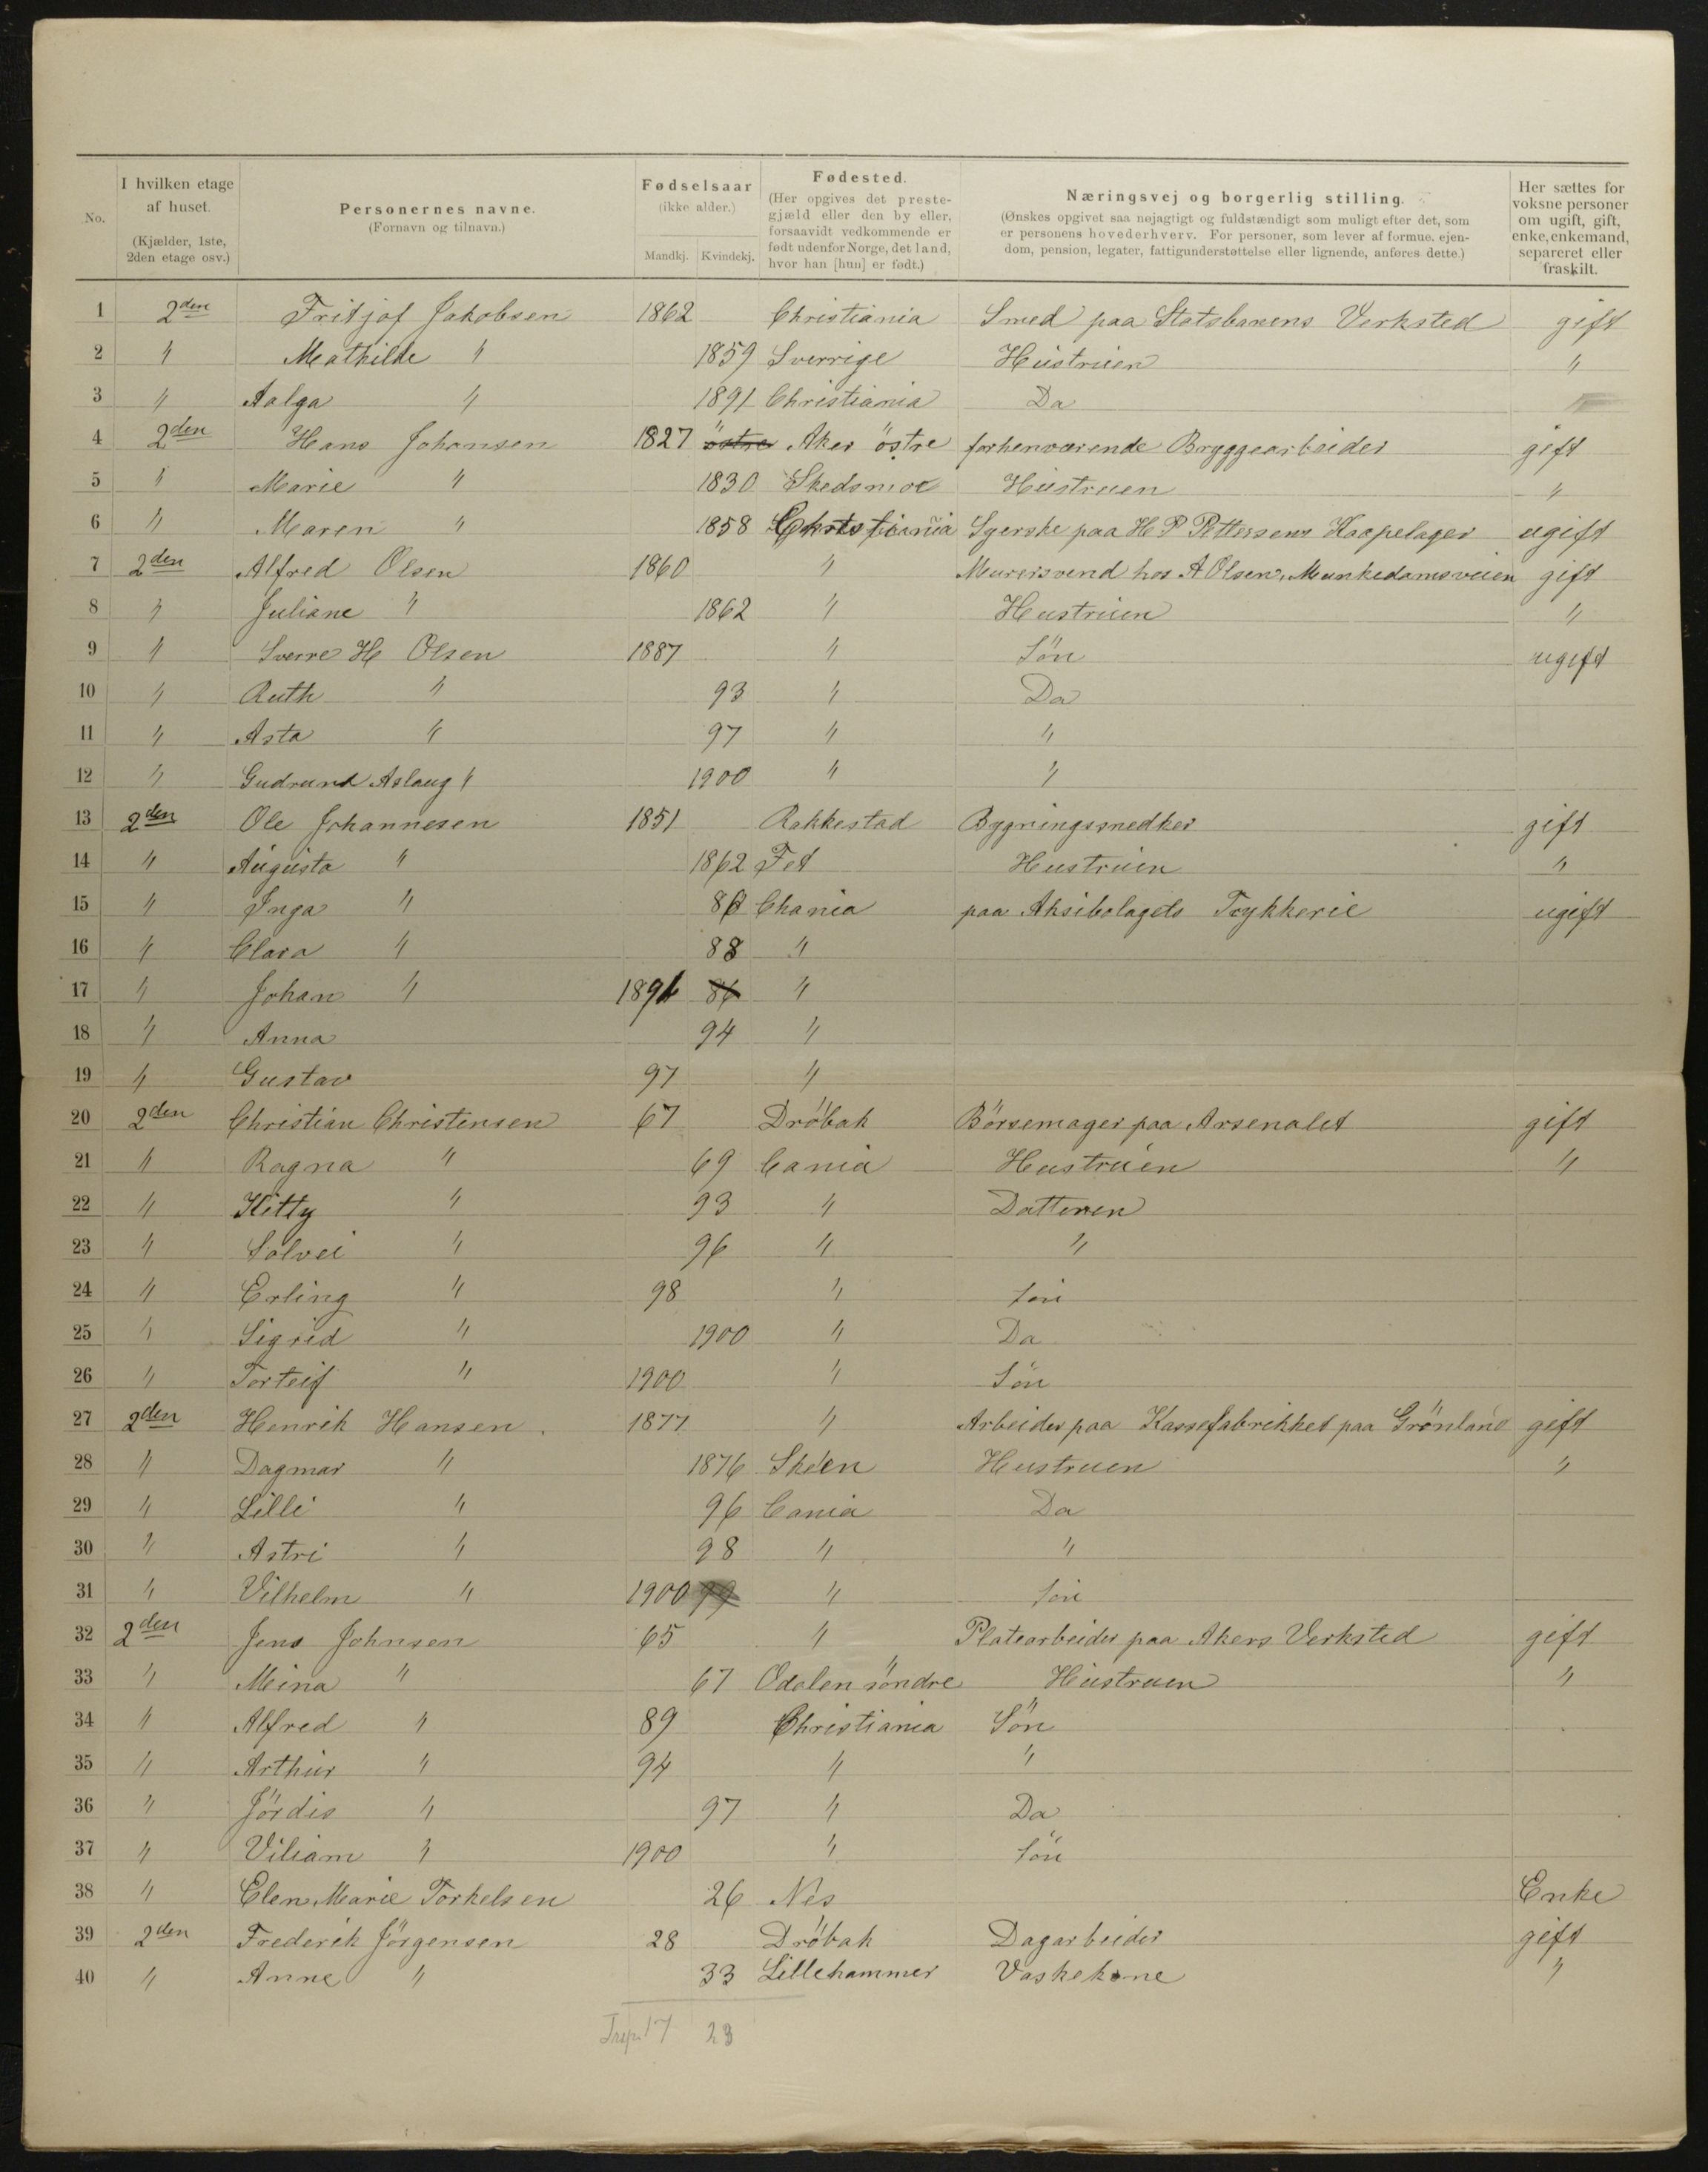 No. | I hvilken etage af huset. (Kjælder, 1ste, 2den etage osv.) | Personernes navne. (Fornavn og tilnavn.) | Fødselsaar (ikke alder.) Mandkj. | Kvindekj. | Fødested. (Her opgives det prestegjæld eller den by eller, forsaavidt vedkommende er født udenfor Norge, det land, hvor han [hun] er født.) | Næringsvej og borgerlig stilling. (Ønskes opgivet saa nøjagtigt og fuldstændigt som muligt efter det, som er personens hovederhverv. For personer, som lever af formue, ejendom, pension, legater, fattigunderstøttelse eller lignende, anføres dette.) | Her sættes for voksne personer om ugift, gift, enke, enkemand, separeret eller fraskilt.
1 2den Fritjof Jakobsen 1862 Christiania Smed paa Statsbanens Verksted gift
2 " Mathilde " 1859 Sverrige Hustruen "
3 " Aalga " 1891 Christiania Da
4 2den Hans Johansen 1827 östre Aker östre forhenværende Bryggearbeider gift
5 " Marie " 1830 Skedsmoe Hustruen "
6 " Maren " 1858 Christiania Syerske paa H P Pettersens Kaapelager ugift
7 2den Alfred Olsen 1860 " Murersvend hos A Olsen, Munkedamsveien gift
8 " Juliane " 1862 " Hustruen "
9 " Sverre H Olsen 1887 " Sön ugift
10 " Ruth " 93 " Da
11 " Asta " 97 " "
12 " Gudrund Aslaug " 1900 " "
13 2den Ole Johannesen 1851 Rakkestad Bygningssnedker gift
14 " Augusta " 1862 Fet Hustruen "
15 " Inga " Chania paa Aksibolagets Trykkerie ugift
16 " Clara " 88 "
17 " Johan " 1891 86 "
18 " Anna 94 "
19 " Gustav 97 "
20 2den Christian Christensen 67 Dröbak Börsemager paa Arsenalet gift
21 " Ragna " 69 Cania Hustruen "
22 " Kitty " 93 " Datteren
23 " Solvei " 96 " "
24 " Erling " 98 " Sön
25 " Sigrid " 1900 " Da
26 " Torleif " 1900 " Sön
27 2den Henrik Hansen. 1877 " Arbeider paa Kassefabrikket paa Grönland gift
28 " Dagmar " 1876 Skeen Hustruen "
29 " Lilli " 96 Cania Da
30 " Astri " 98 " "
31 " Vilhelm " 1900 99 " Sön
32 2den Jens Johnsen 65 " Platearbeider paa Akers Verksted gift
33 " Meina " 67 Odalen söndre Hustruen "
34 " Alfred " 89 Christiania Sön
35 " Arthur " 94 " "
36 " Jördis " 97 " Da
37 " Viliam " 1900 " Sön
38 " Elen Marie Torkelsen 26 Nes Enke
39 2den Frederik Jörgensen 28 Dröbak Dagarbeider gift
40 " Anne " 33 Lillehammer Vaskekone "
Trsp. 17 23